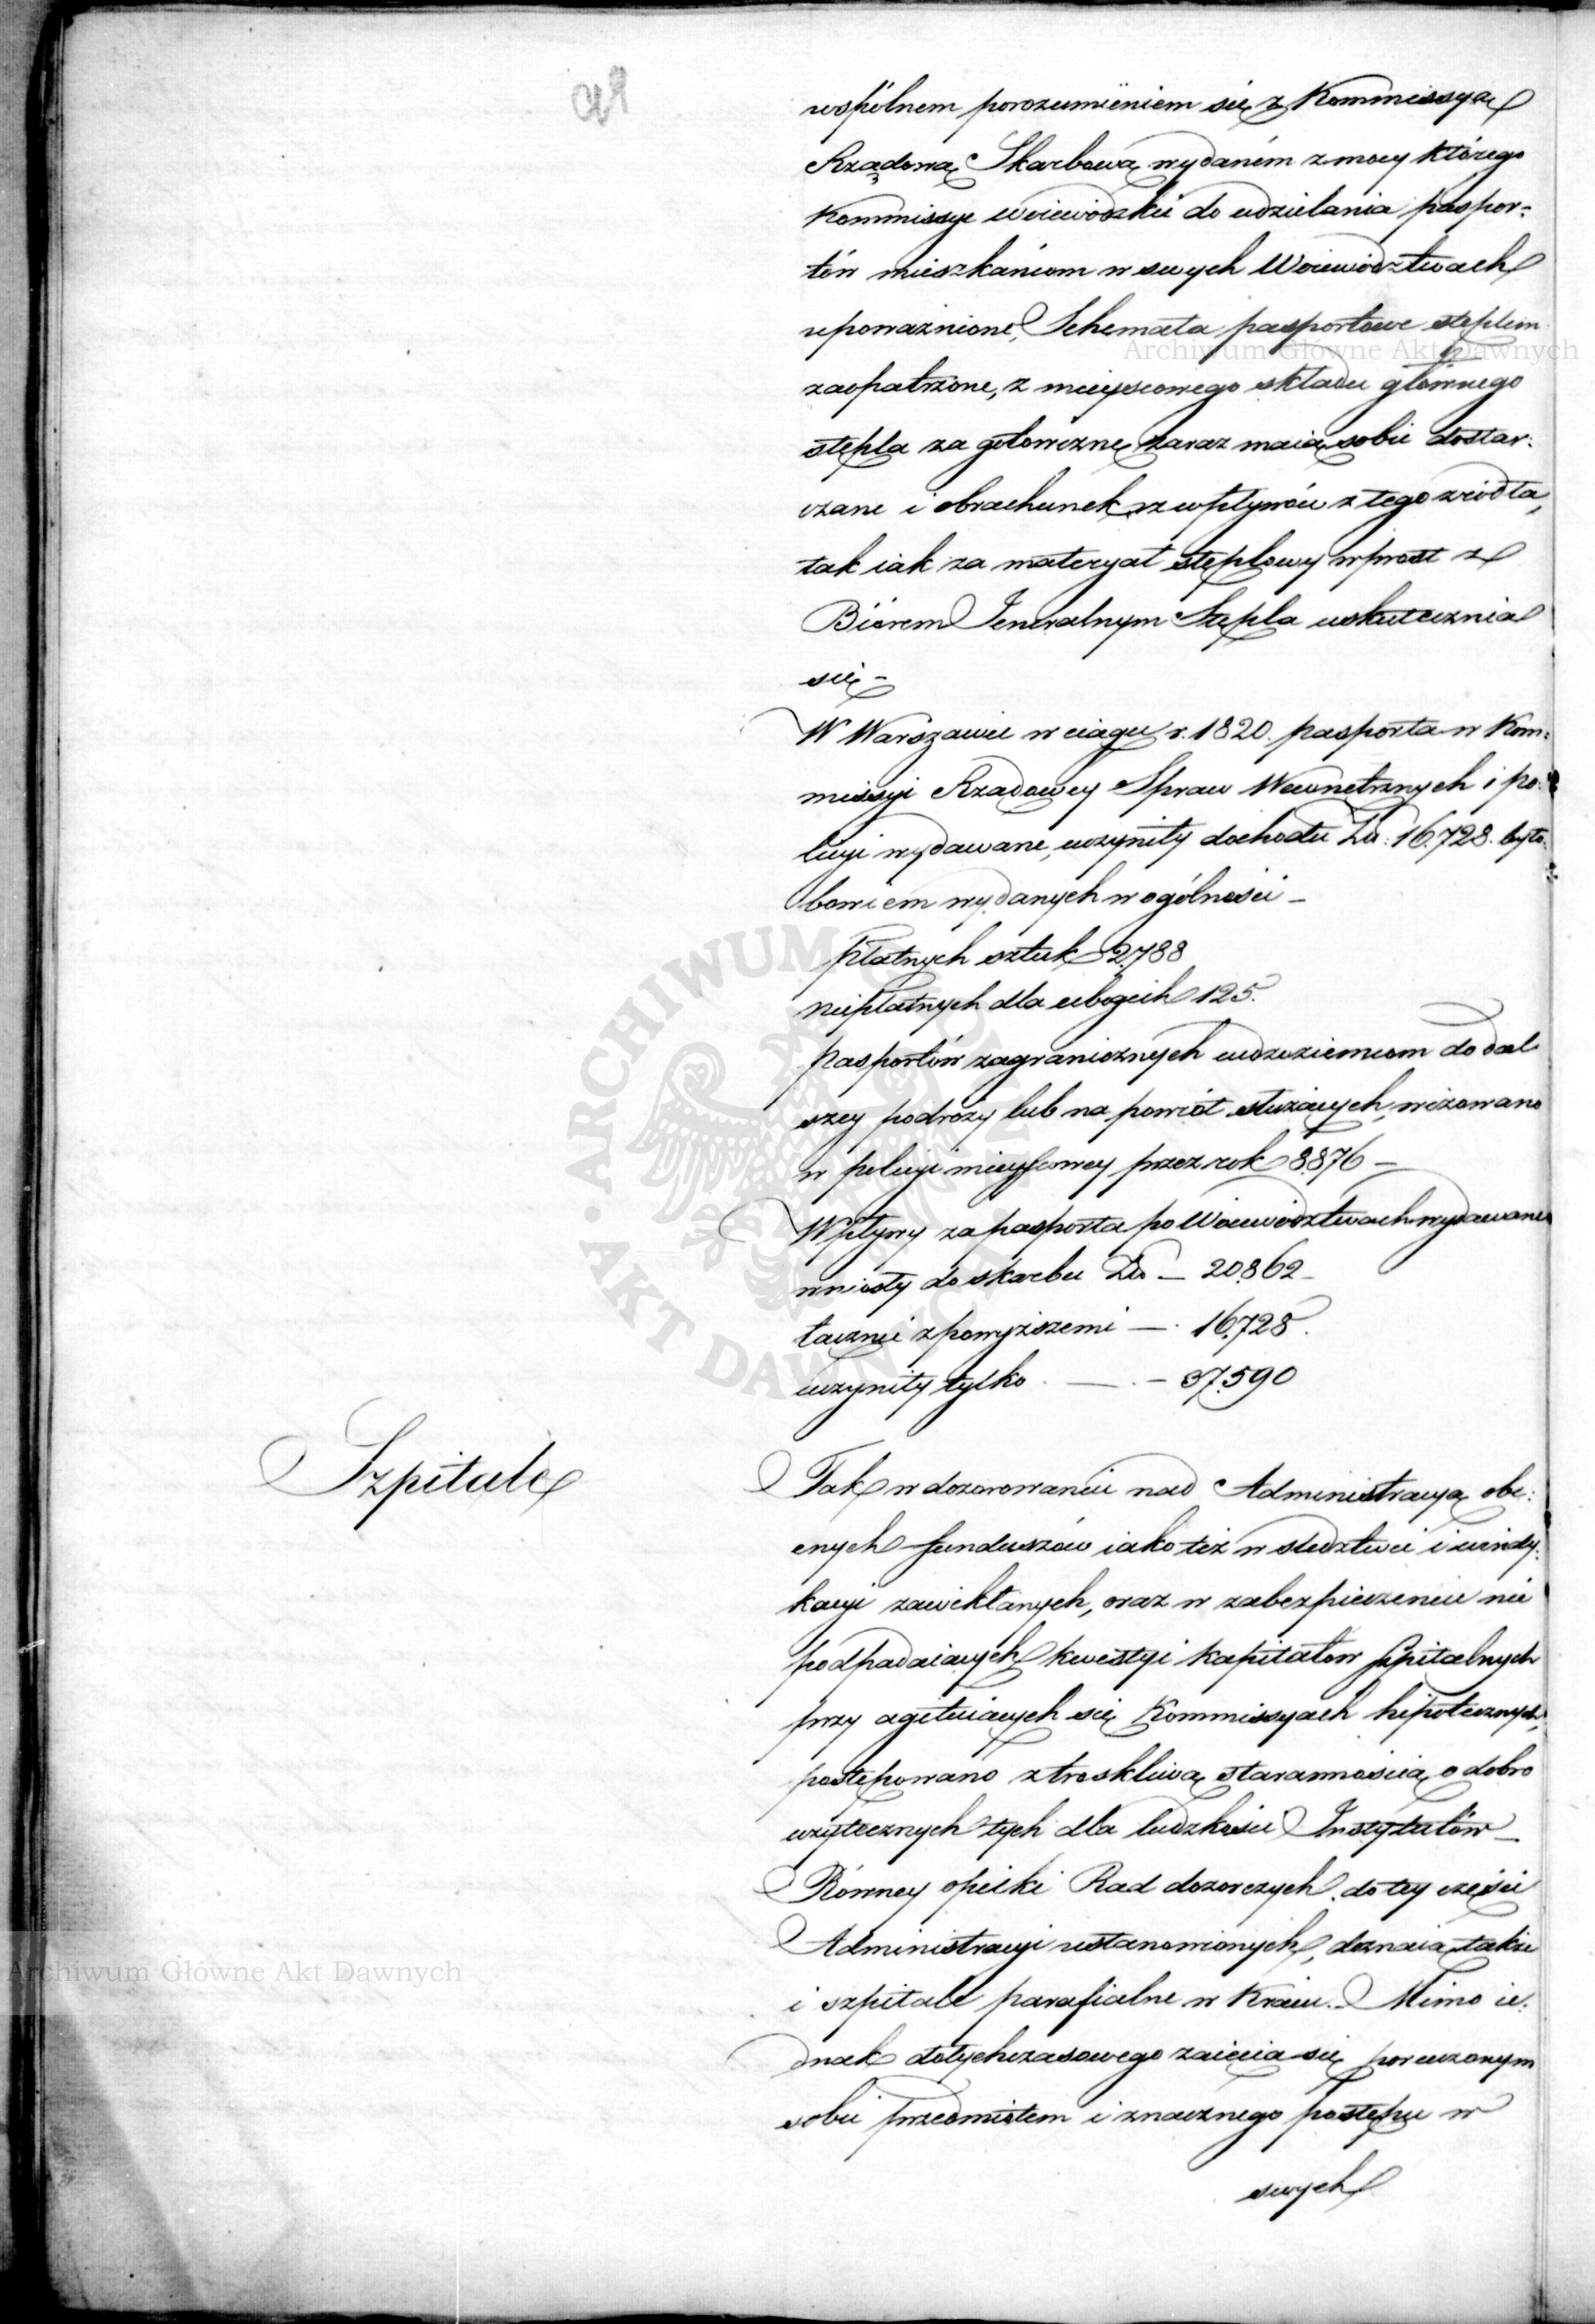 wspólnem porozumieniem się z Kommissyą
Rządową Skarbową wydaném z mocy którego
Kommissye woiewódzkie do udzielania paspor-
tów mieszkańcom w swych Woiewództwach
upoważnione, Schemata pasportowe stęplem
zaopatrzone, z mieyscowego składu głównego
stępla za gotowiznę zaraz maią sobie dostar-
czane i obrachunek z wpływów z tego źródła,
tak iak za materyał stęplowy wprost z
Biórem Jeneralnym Stępla uskutecznia
się –
W Warszawie w ciągu r. 1820. pasporta w Kom-
missyi Rządowey Spraw Wewnętrznych i po-
licyi wydawane, uczyniły dochodu Zło: 16,728. było
bowiem wydanych w ogólności –
płatnych sztuk 2,788
niepłatnych dla ubogich 125.
Pasportów zagranicznych cudzoziemcom do dal
szey podróży lub na powrót służących, wizowano
w policyi mieyscowey przez rok 8876 –
Wpływy za pasporta po Woiewództwach wydawane
wniosły do skarbu Zło – 20,862 –
łącznie z powyższemi – . 16,728.
uczyniły tylko . – . – 37,590
Szpitale
Tak w dozorowaniu nad Administracyą obe-
cnych funduszów iako też w śledztwie i windy-
kacyi zawikłanych, oraz w zabezpieczeniu nie
podpadaiących kwestyi kapitałów szpitalnych
przy agituiących się Kommissyach hipotecznych,
postępowano z troskliwą starannością o dobro
użytecznych tych dla ludzkości Instytutów –
Równey opieki Rad dozorczych do tey części
Administracyi ustanowionych, doznaią także
i szpitale parafialne w Kraiu. – Mimo ie-
dnak dotychczasowego zaięcia się poruczonym
sobie przedmiotem i znacznego postępu w
swych
Archiwum Główne Akt Dawnych
Archiwum Główne Akt Dawnych